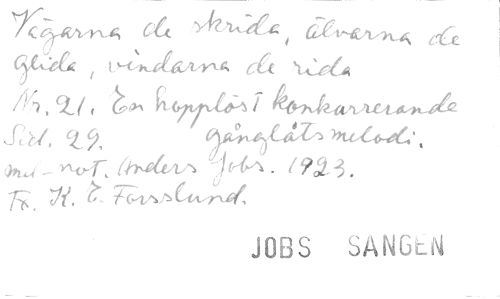 Vägarna de skrida, älvarna de
glida, vindarna de rida
Nr. 21. En hopplöst konkurrerande
Sid. 29. gånglåtsmelodi.
mel-not. Anders Jobs. 1923.
Tx. K. E. Forsslund.
JOBS SANGEN